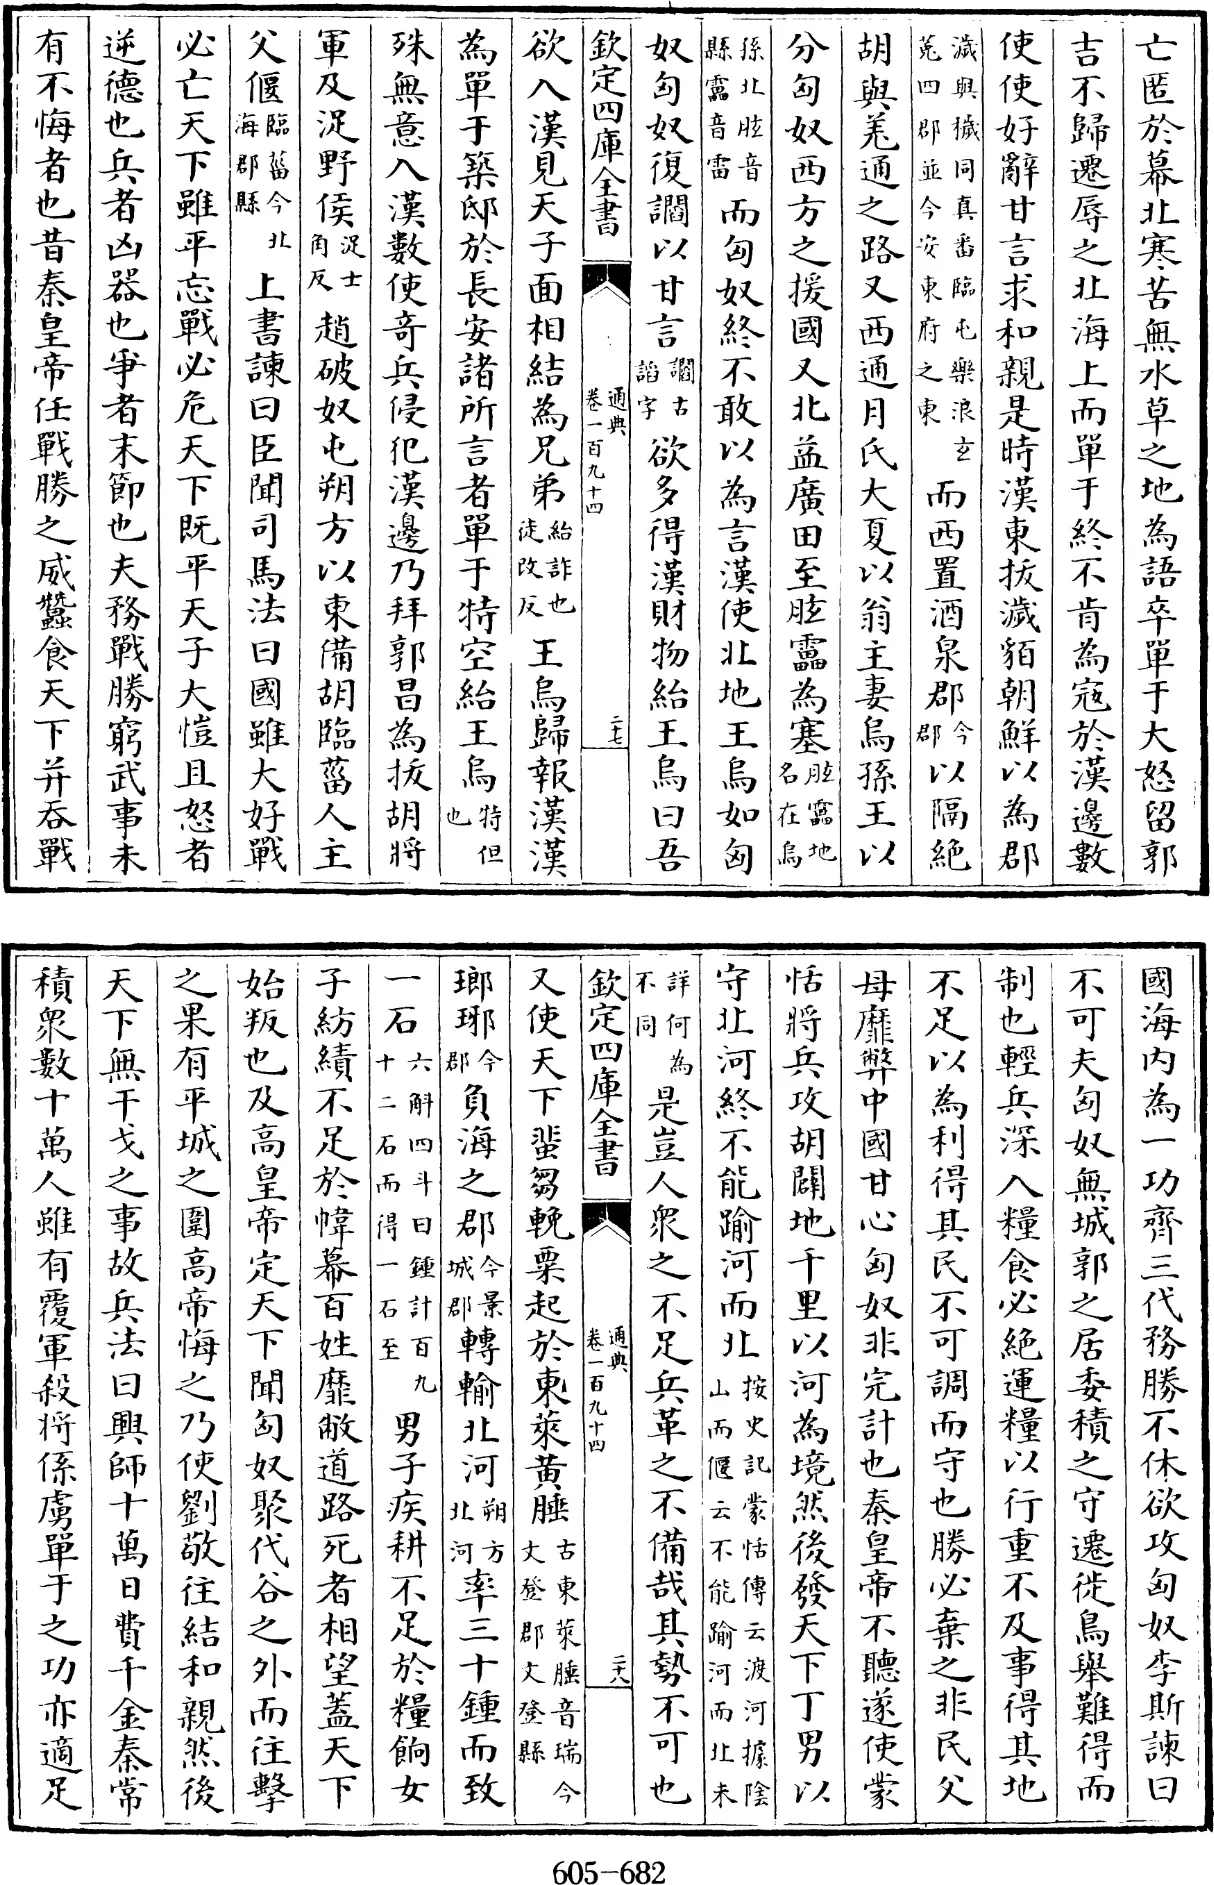 亡匿於幕北寒苦無水草之地為語卒單于大怒留郭
吉不歸遷辱之北海上而單于終不肯為寇於漢邊數
使使好辭甘言求和親是時漢東拔濊貊朝鮮以為郡
濊與穢同真番臨屯樂浪玄
菟四郡並今安東府之東
而西置酒泉郡
今
郡
以隔絶
胡與羌通之路又西通月氏大夏以翁主妻烏孫王以
分匈奴西方之援國又北益廣田至眩靁為塞
眩靁地
名在烏
孫北眩音
縣靁音雷
而匈奴終不敢以為言漢使北地王烏如匈
奴匈奴復讇以甘言
讇古
諂字
欲多得漢財物紿王烏曰吾
欽定四庫全書
通典
卷一百九十四
二十七
欲入漢見天子面相結為兄弟
紿詐也
徒改反
王烏歸報漢漢
為單于築邸於長安諸所言者單于特空紿王烏
特但
也
殊無意入漢數使奇兵侵犯漢邊乃拜郭昌為拔胡將
軍及浞野侯
浞士
角反
趙破奴屯朔方以東備胡臨菑人主
父偃
臨菑今北
海郡縣
上書諫曰臣聞司馬法曰國雖大好戰
必亡天下雖平忘戰必危天下既平天子大愷且怒者
逆德也兵者凶器也爭者末節也夫務戰勝窮武事未
有不悔者也昔秦皇帝任戰勝之威蠶食天下并吞戰
國海内為一功齊三代務勝不休欲攻匈奴李斯諫曰
不可夫匈奴無城郭之居委積之守遷徙鳥舉難得而
制也輕兵深入糧食必絶運糧以行重不及事得其地
不足以為利得其民不可調而守也勝必棄之非民父
母靡弊中國甘心匈奴非完計也秦皇帝不聽遂使蒙
恬將兵攻胡闢地千里以河為境然後發天下丁男以
守北河終不能踰河而北
按史記蒙恬傳云渡河據陰
山而偃云不能踰河而北未
詳何為
不同
是豈人衆之不足兵革之不備哉其勢不可也
欽定四庫全書
通典
卷一百九十四
二十八
又使天下蜚芻輓粟起於東萊黄腄
古東萊腄音瑞今
文登郡文登縣
瑯琊
今
郡
負海之郡
今景
城郡
轉輸北河
朔方
北河
率三十鍾而致
一石
六斛四斗曰鍾計百九
十二石而得一石至
男子疾耕不足於糧餉女
子紡績不足於帷幕百姓靡敝道路死者相望蓋天下
始叛也及高皇帝定天下聞匈奴聚代谷之外而往擊
之果有平城之圍高帝悔之乃使劉敬往結和親然後
天下無干戈之事故兵法曰興師十萬日費千金秦常
積衆數十萬人雖有覆軍殺將係虜單于之功亦適足
605-682